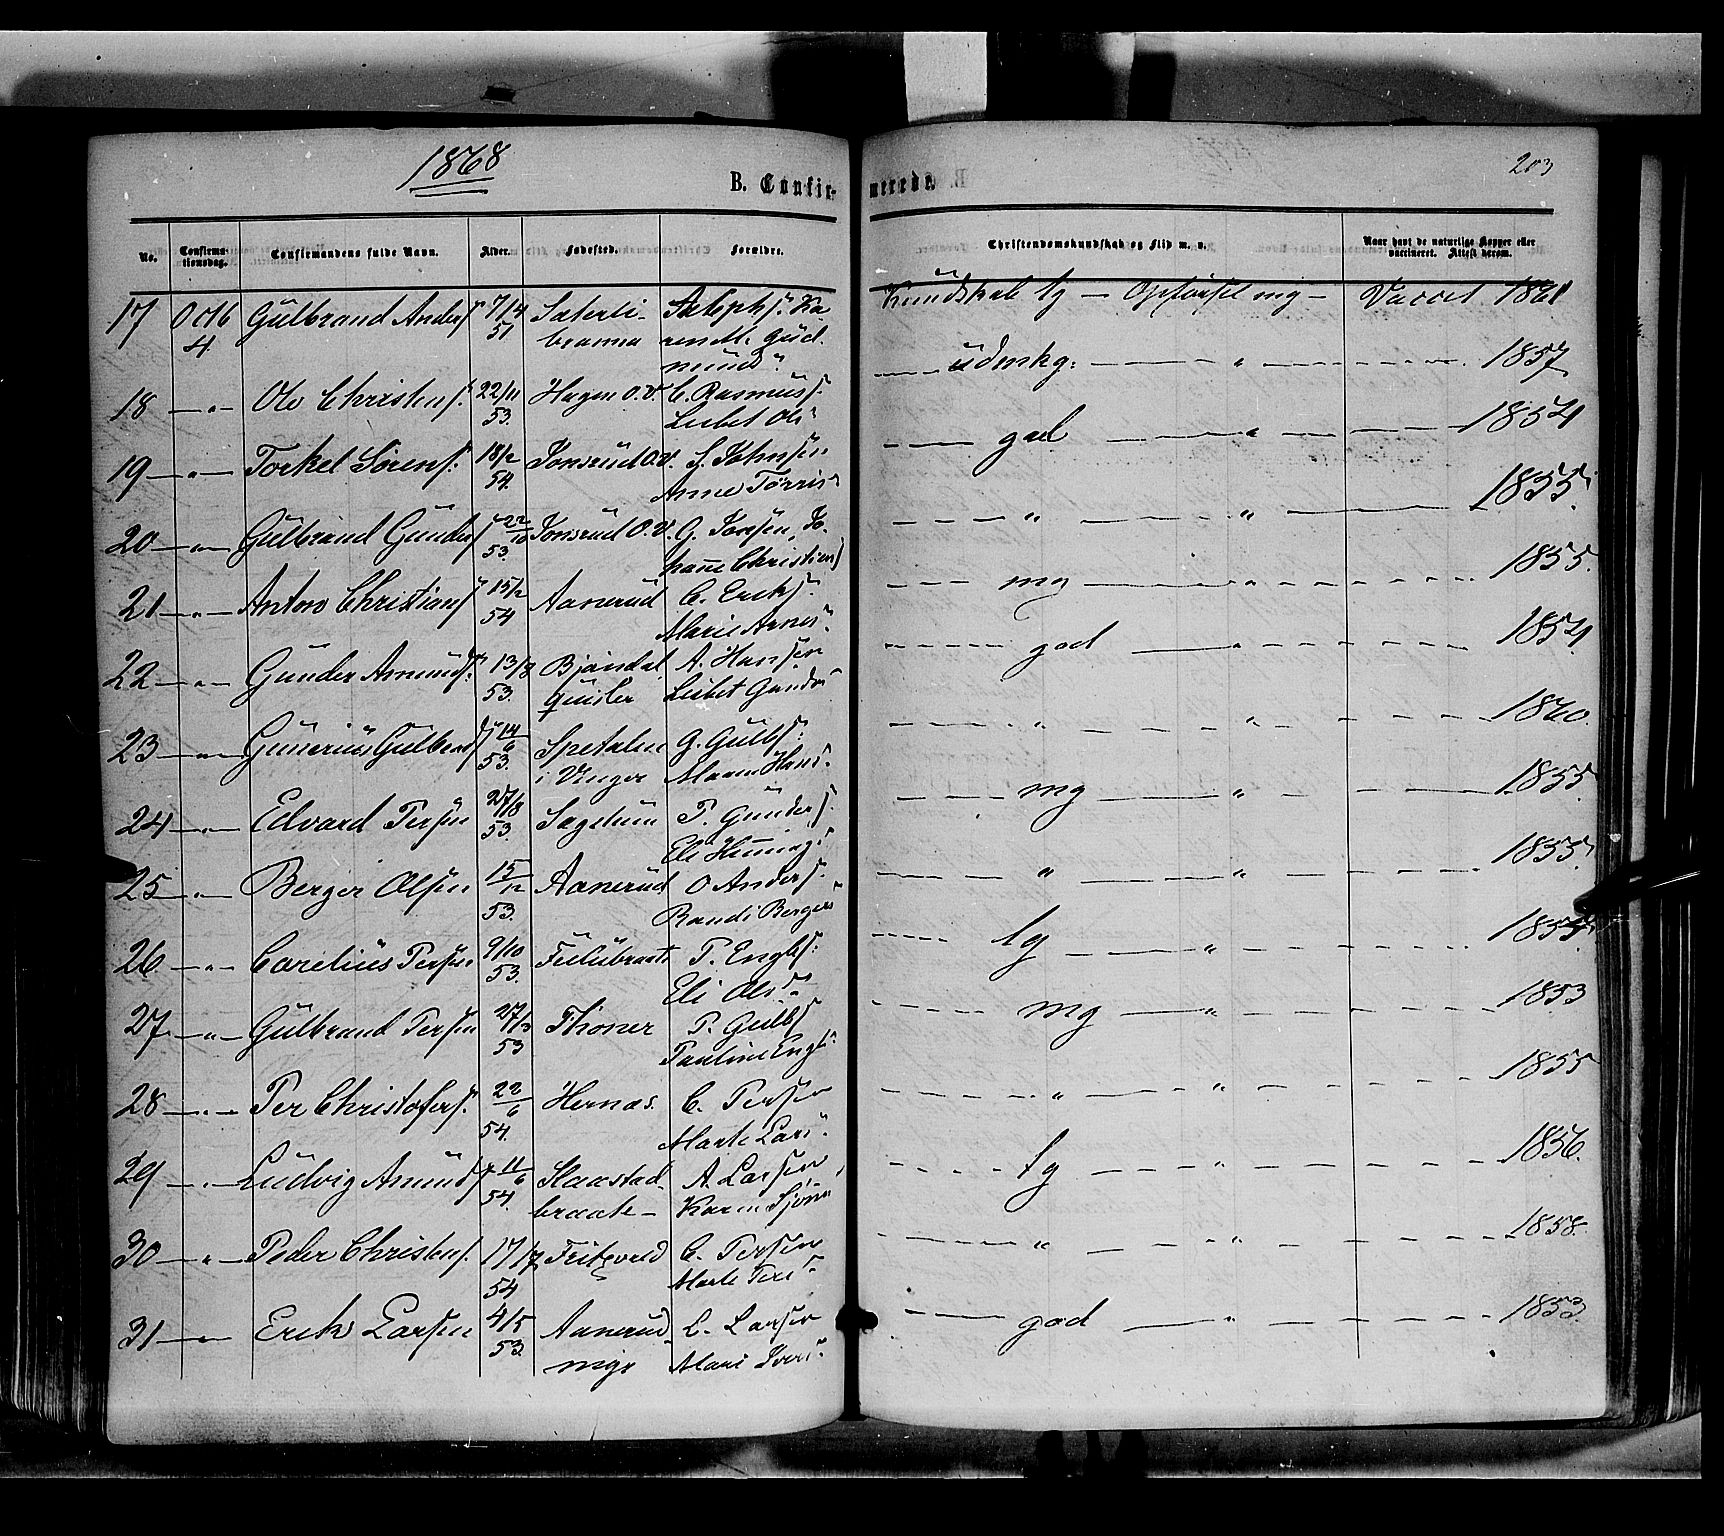 1868
203
B. Confir-
merede.
No.
Confirma-
tionsdag.
Confirmandens fulde Navn.
Alder.
Fødested.
Forældre.
Christendomskundskab og Flid m. v.
Naar havt de naturlige Kopper eller
vaccineret. Attest herom.
17 Octb 4. Gülbrand Anders 7/4 51 Kundskab tg — Opførsel mg — Vaccet 1861
18 — " — Ole Christens. 22/11 53. Hagen O.V. C. Rasmüss. Lisbet Ols" — — — — " — — — 1857
19 — " — Torkel Sörens. 18/2 54. Jonsrüd O.V. S. Johnsen Anne Torris" — — god — — — " — — — 1854
20 — " — Gülbrand Günders 22/10 53. Jonsrüd O.V. G. Jonsen, Jo-
hanne Christians — — " — — — " — — — 1855.
21 — " — Anton Christians 15/2 54 Aanerüd C. Eriks. Marie Arnes" — — mg — — — " — — — 1855.
22 — " — Günder Amünds. 13/8 53. Bjöndal A. Hansen Lisbet Gunders" — — god — — — " — — — 1854
23 — " — Günerius Gülbrands 14/6 53. Spetalen
i Vinger G. Gülbs. Maren Hans" — — " — — — " — — — 1860.
24 — " — Edvard Persen 27/8 53. Sagstuen P. Günders. Eli Henning" — — mg — — — " — — — 1855
25 — " — Berger Olsen 15/12 53. Aanerüd O Anders. Randi Bergers — — " — — — " — — — 1855
26 — " — Carelius Persen 9/10 53. P. Engbs. Eli Ols" — — tg — — — " — — —
27 — " — Gülbrand Persen 27/3 53 Thoner P. Gulbs Pauline Engb" — — mg — — — " — — — 1853
28 — " — Per Christofers. 22/6 54. Hernæs. C. Persen Marte Lars" — — " — — — " — — — 1855
29 — " — Ludvig Amünds 11/6 54. Skaarstad-
braate — A. Larsen, Karen — — tg — — — " — — — 1856.
30 — " — Peder Christens. 17/7 54 C. Persen Marte Pers" — — " — — — " — — — 1858.
31 — " — Erik Larsen 4/5 53. Aanerud- L. Larsen Mari Ivers" — — god — — — " — — — 1853